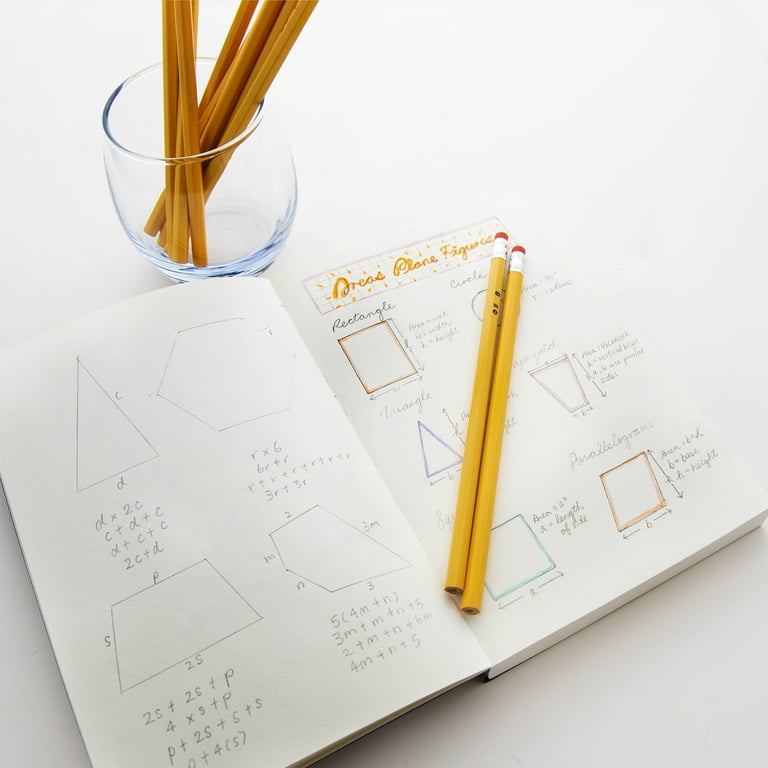 c
d
d x 2c
c + d + c
d + c + c
2c + d
r
r x 6
6r + r
r + r + r + r + r + r
3r + 3r
p
s
2s
2s + 2s + p
4 x s + p
p + 2s + s + s
p + 4(s)
2
3m
m
n
3
5(4m + n)
3m + m + n + 5
2 + m + n + 6m
4m + n + 5
Areas Plane Figures
Rectangle
Area = w x h
w = width
h = height
h
w
Circle
Area = πr²
r = radius
Triangle
b
a
b
a, b are parallel
sides
Parallelogram
Area = b x h
b = base
h = height
h
b
Area = a²
a = length
of side
a